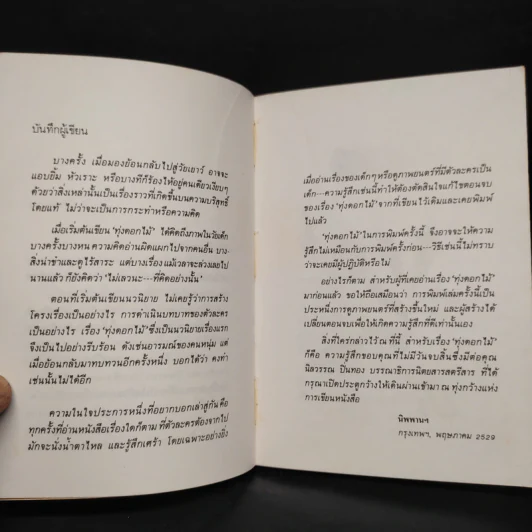 บันทึกผู้เขียน
บางครั้ง เมื่อมองย้อนกลับไปสู่วัยเยาว์ อาจจะ
แอบยิ้ม หัวเราะ หรือบางทีก็ร้องไห้อยู่คนเดียวเงียบๆ
ด้วยว่าสิ่งเหล่านั้นเป็นเรื่องราวที่เกิดขึ้นบนความบริสุทธิ์
โดยแท้ ไม่ว่าจะเป็นการกระทำหรือความคิด
เมื่อเริ่มต้นเขียน 'ทุ่งดอกไม้' ได้คิดถึงภาพในวัยเด็ก
บางครั้งบางหน ความคิดอ่านผิดแผกไปจากคนอื่น บาง-
สิ่งน่าขำและดูไร้สาระ แต่บางเรื่องแม้เวลาจะล่วงเลยไป
นานแล้ว ก็ยังคิดว่า 'ไม่เลวนะ---ที่คิดอย่างนั้น'
ตอนที่เริ่มต้นเขียนนวนิยาย ไม่เคยรู้ว่าการสร้าง
โครงเรื่องเป็นอย่างไร การดำเนินบทบาทของตัวละคร
เป็นอย่างไร เรื่อง 'ทุ่งดอกไม้' ซึ่งเป็นนวนิยายเรื่องแรก
จึงเป็นไปอย่างรีบร้อน ดังเช่นอารมณ์ของคนหนุ่ม แต่
เมื่อย้อนกลับมาทบทวนอีกครั้งหนึ่ง บอกได้ว่า คงทำ
เช่นนั้นไม่ได้อีก
ความในใจประการหนึ่งที่อยากบอกเล่าสู่กัน คือ
ทุกครั้งที่อ่านหนังสือเรื่องใดก็ตาม ที่ตัวละครต้องจากไป
มักจะนั่งน้ำตาไหล และรู้สึกเศร้า โดยเฉพาะอย่างยิ่ง
เมื่ออ่านเรื่องของเด็กๆ หรือดูภาพยนตร์ที่มีตัวละครเป็น
เด็ก---ความรู้สึกเช่นนี้ทำให้ต้องตัดสินใจแก้ไขตอนจบ
ของเรื่อง 'ทุ่งดอกไม้' จากที่เขียนไว้เดิมและเคยพิมพ์
ไปแล้ว
'ทุ่งดอกไม้' ในการพิมพ์ครั้งนี้ จึงอาจจะให้ความ
รู้สึกไม่เหมือนกับการพิมพ์ครั้งก่อน---วิธีเช่นนี้ไม่ทราบ
ว่าจะเคยมีผู้ปฏิบัติหรือไม่
อย่างไรก็ตาม สำหรับผู้ที่เคยอ่านเรื่อง 'ทุ่งดอกไม้'
มาก่อนแล้ว ขอให้ถือเสมือนว่า การพิมพ์เล่มครั้งนี้เป็น
ประหนึ่งการดูภาพยนตร์ที่สร้างขึ้นใหม่ และผู้สร้างได้
เปลี่ยนตอนจบเพื่อให้เกิดความรู้สึกที่ดีเท่านั้นเอง
สิ่งที่ใคร่กล่าวไว้ ณ ที่นี้ สำหรับการพิมพ์ครั้งนี้
ก็คือ ความรู้สึกขอบคุณที่ไม่มีวันจบสิ้นซึ่งมีต่อคุณ
นิลวรรณ ปิ่นทอง บรรณาธิการนิตยสารสตรีสาร ที่ได้
กรุณาเปิดประตูกว้างให้เดินผ่านเข้ามา ณ ทุ่งกว้างแห่ง
การเขียนหนังสือ
นิพพานฯ
กรุงเทพฯ, พฤษภาคม 2529